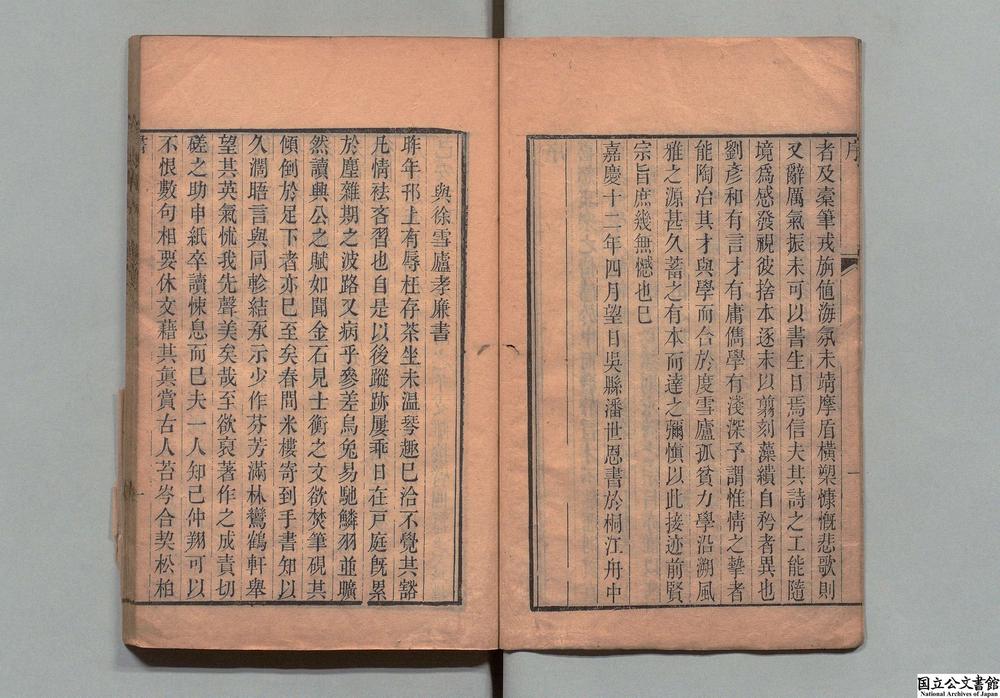 序
者及橐筆戎旃値海氛未靖摩盾橫槊慷慨悲歌則
又辭厲氣振未可以書生目焉信夫其詩之工能隨
境爲感發視彼捨本逐末以翦刻藻繢自矜者異也
劉彥和有言才有庸儁學有淺深予謂惟情之摯者
能陶冶其才與學而合於度雪廬孤貧力學沿溯風
雅之源甚久蓄之有本而達之彌愼以此接迹前賢
宗旨庶幾無憾也已
嘉慶十二年四月望日吳縣潘世恩書於桐江舟中
一
與徐雪廬孝廉書
昨年邗上有辱枉存茶坐未温琴趣已洽不覺其豁
凡情袪吝習也自是以後蹤跡屢乖日在戸庭旣累
於塵雜期之波路又病乎參差烏兔易馳鱗羽並曠
然讀興公之賦如聞金石見士衡之文欲焚筆硯其
傾倒於足下者亦已至矣春間米樓寄到手書知以
久濶晤言與同軫結承示少作芬芳滿林鸞鶴軒舉
望其英氣怵我先聲美矣哉至欲裒著作之成責切
磋之助申紙卒讀悚息而已夫一人知己仲翔可以
不恨數句相要休文藉其眞賞古人苔岑合契松柏
書
一
国立公文書館
National Archives of Japan